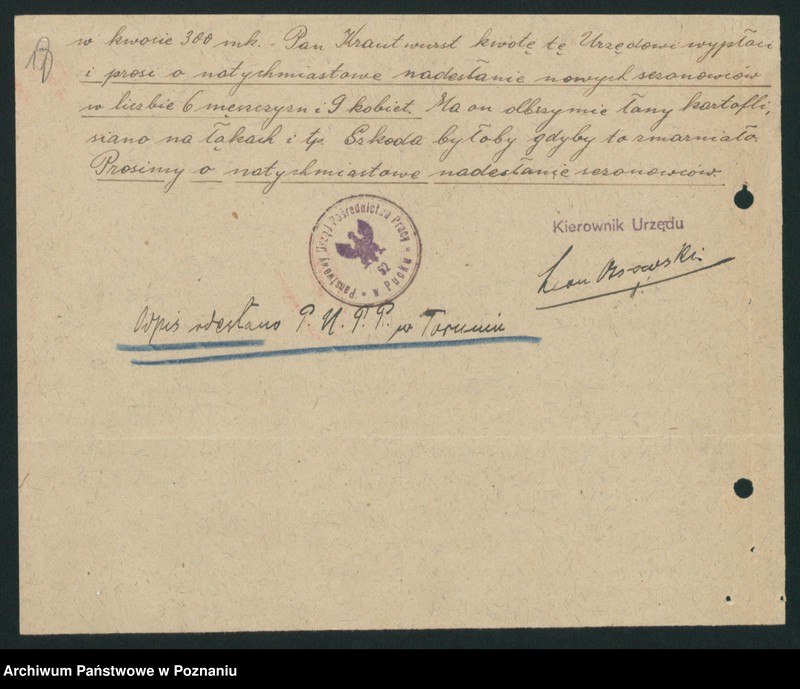 w kwocie 300 mk. - Pan Krautwurst kwotę tę Urzędowi wypłaci
i prosi o natychmiastowe nadesłanie nowych sezonowców
w liczbie 6 męszczyzn i 9 kobiet. Ma on olbrzymie łany kartofli,
siano na łąkach i tp. Szkoda byłoby gdyby to zmarniało.
Prosimy o natychmiastowe nadesłanie sezonowców.
Państwowy Urząd Pośrednictwa Pracy
w Pucku
52
Kierownik Urzędu
Leon Osowski
Odpis odesłano P. U. P. P. w Toruniu
Archiwum Państwowe w Poznaniu